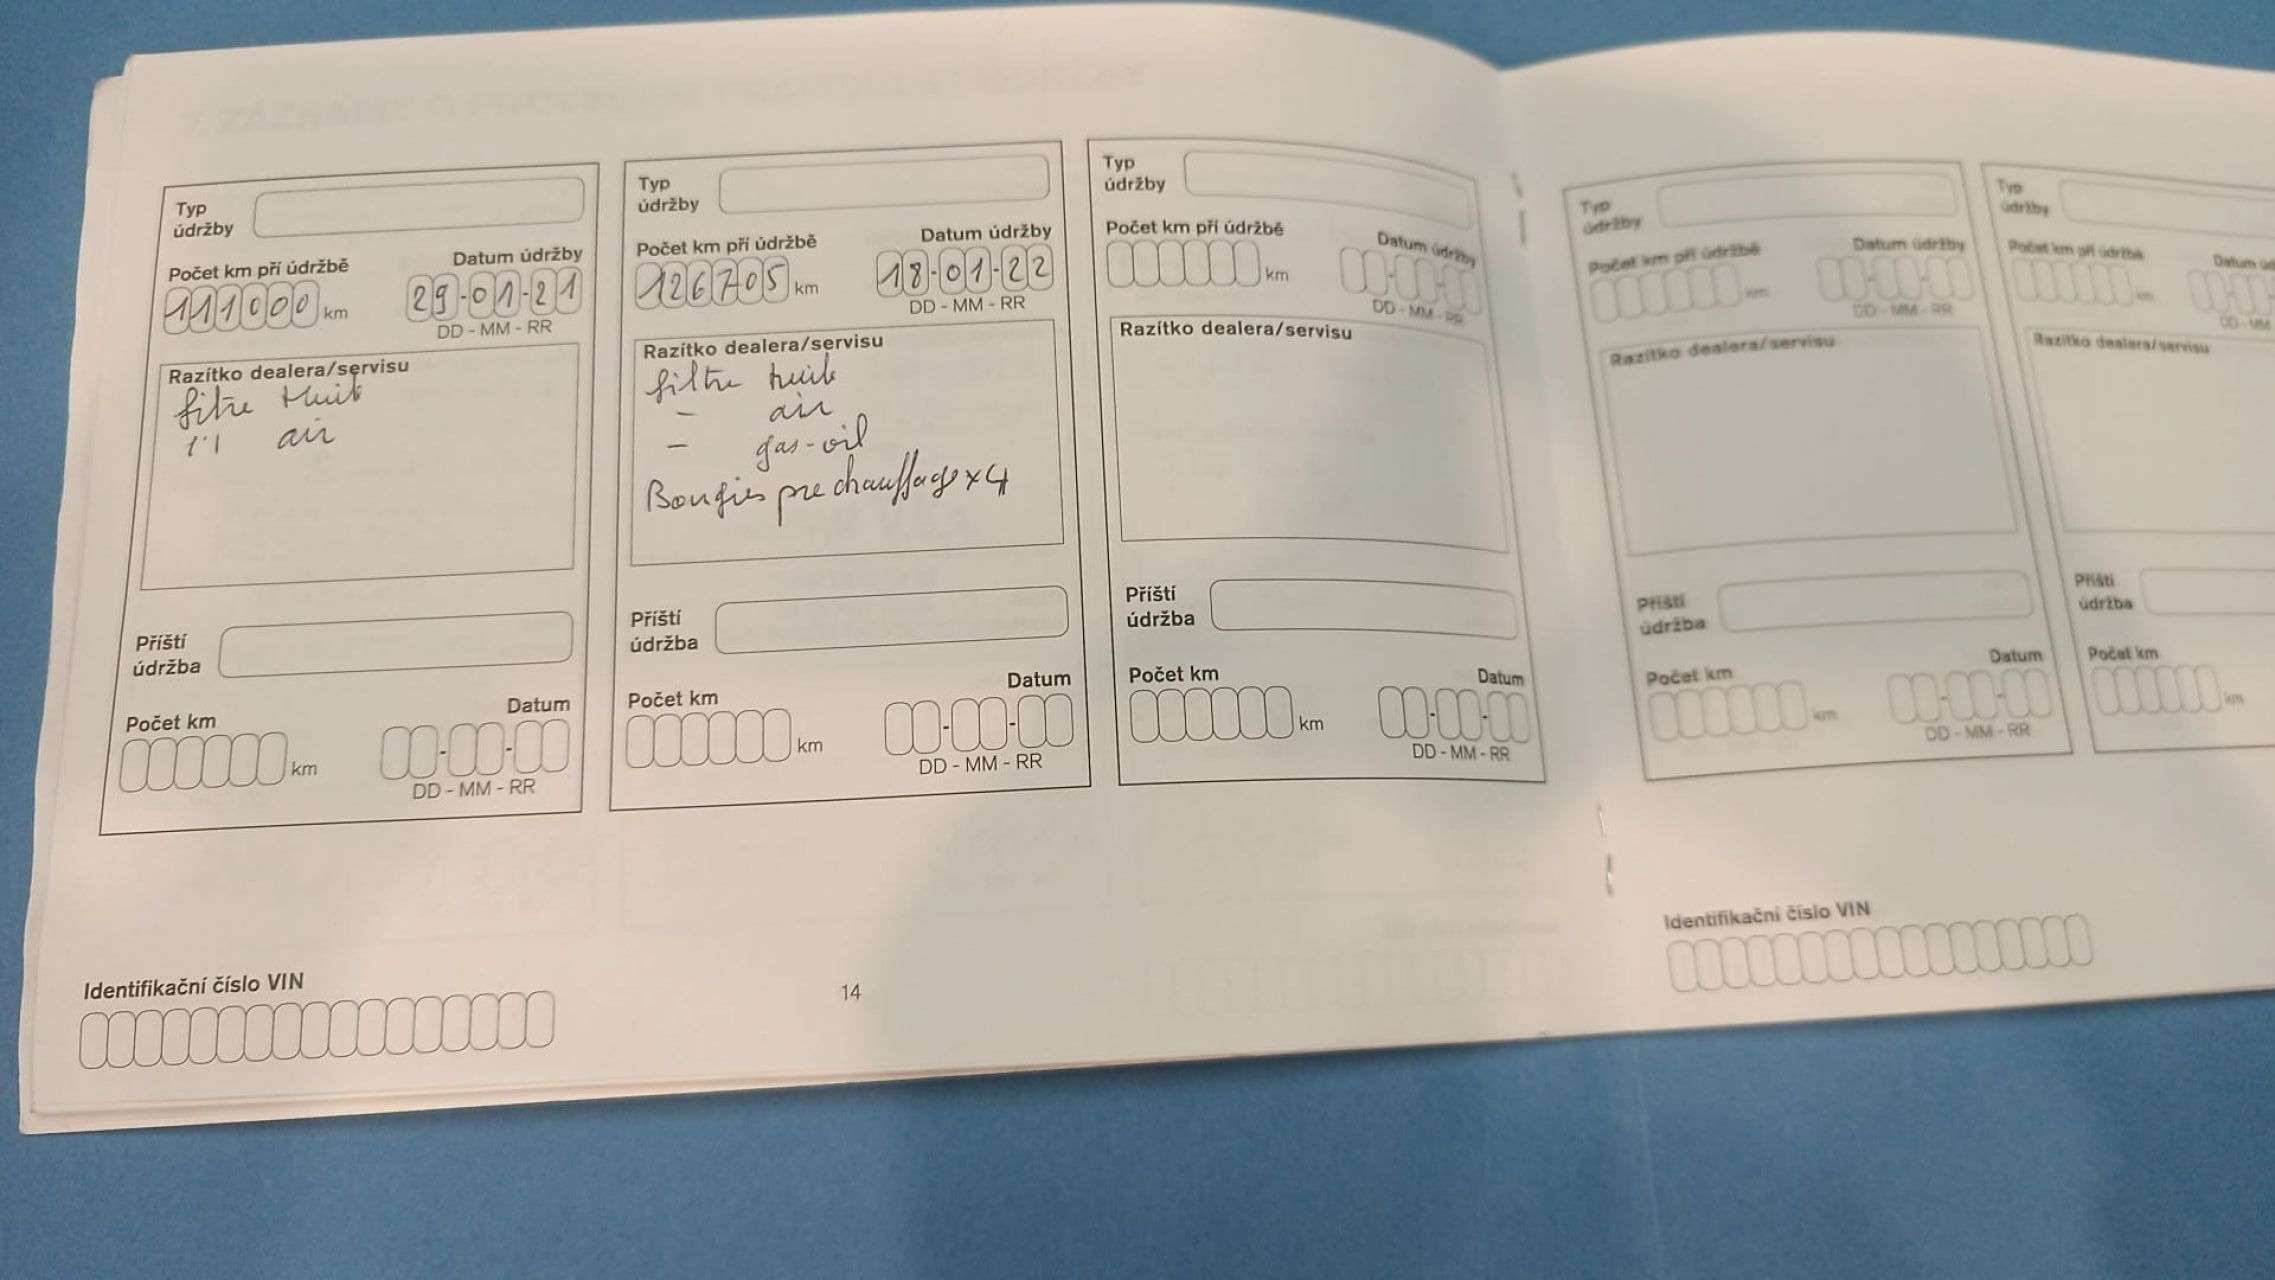 Typ
údržby
Počet km při údržbě
Datum údržby
111000 km
29-01-21
DD - MM - RR
Razítko dealera/servisu
filtre huile
1'1 air
Příští
údržba
Počet km
Datum
km
DD - MM - RR
Typ
údržby
Počet km při údržbě
Datum údržby
126705 km
18-01-22
DD - MM - RR
Razítko dealera/servisu
filtre huile
- air
- gas-oil
Bougies prechauffage x4
Příští
údržba
Počet km
Datum
km
DD - MM - RR
Typ
údržby
Počet km při údržbě
Datum údržby
km
DD - MM - RR
Razítko dealera/servisu
Příští
údržba
Počet km
Datum
km
DD - MM - RR
Identifikační číslo VIN
14
Typ
údržby
Počet km při údržbě
Datum údržby
km
DD - MM - RR
Razítko dealera/servisu
Příští
údržba
Počet km
Datum
km
DD - MM - RR
Typ
údržby
Počet km při údržbě
Datum
km
DD - MM
Razítko dealera/servisu
Příští
údržba
Počet km
km
Identifikační číslo VIN